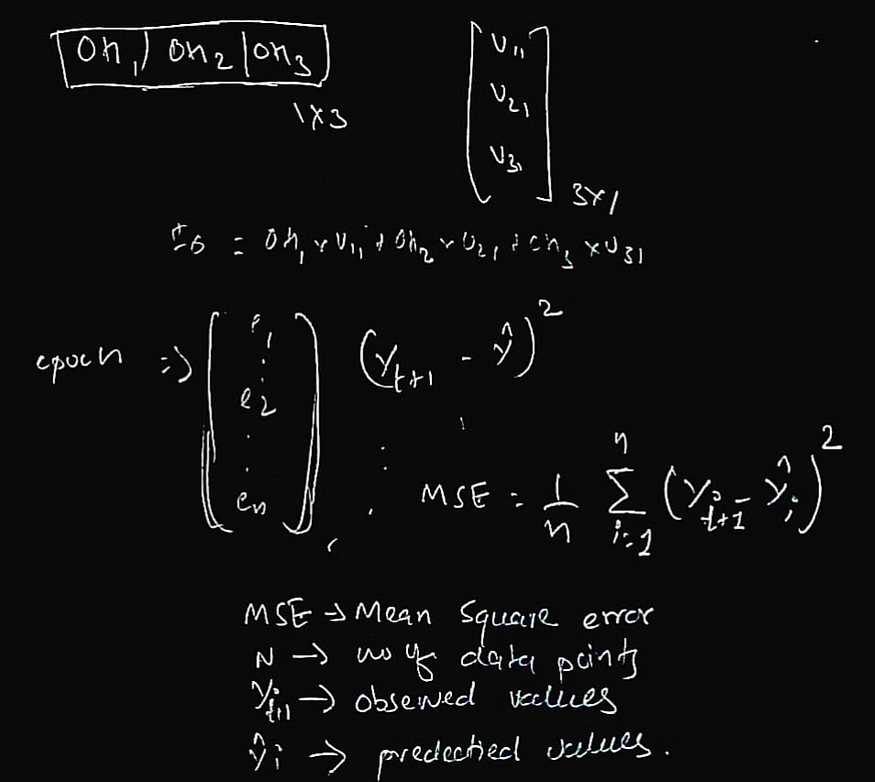 OH₁ | OH₂ | OH₃
1×3
V₁₁
V₂₁
V₃₁
3×1
I₀ = OH₁ × V₁₁ + OH₂ × V₂₁ + OH₃ × V₃₁
epoch ⇒ e₁ : e₂ : eₙ
(Yₜ₊₁ - Ŷ)²
MSE = 1/n Σ i=1 n (Yⁱₜ₊₁ - Ŷᵢ)²
MSE → Mean Square error
N → no of data points
Yⁱₜ₊₁ → obsewed values
Ŷi → predectied values.